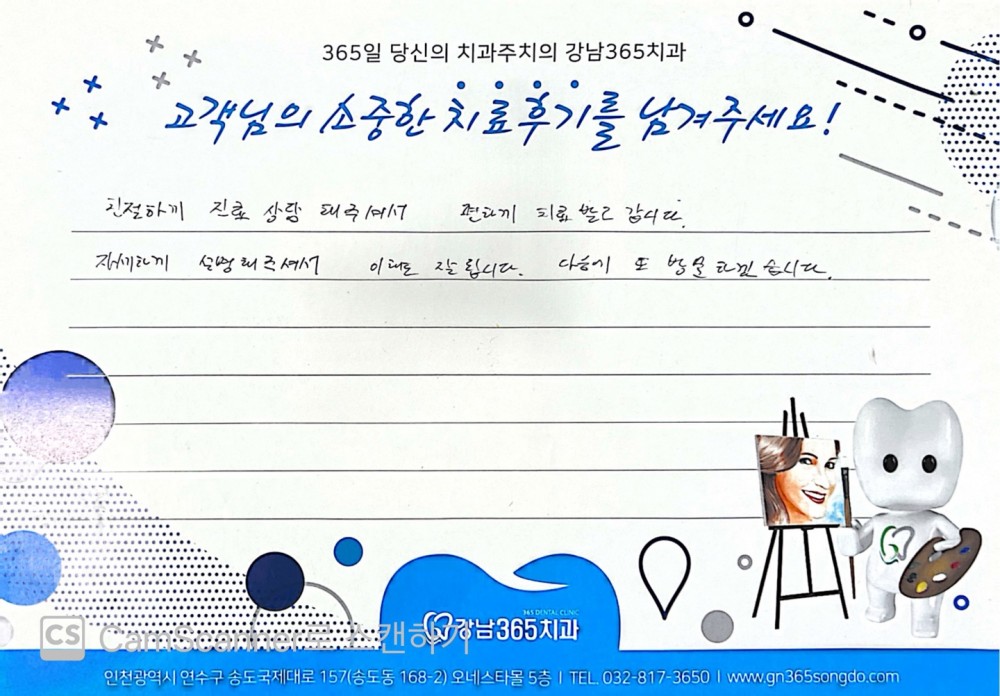 365일 당신의 치과주치의 강남365치과
고객님의 소중한 치료후기를 남겨주세요!
친절하게 진료 상담 해주셔서 편하게 치료 받고 갑니다.
자세하게 설명해주셔서 이해도 잘 됩니다. 다음에 또 방문하겠습니다.
365 DENTAL CLINIC
강남365치과
CS CamScanner로 스캔하기
인천광역시 연수구 송도국제대로 157(송도동 168-2) 오네스타몰 5층 | TEL. 032-817-3650 | www.gn365songdo.com